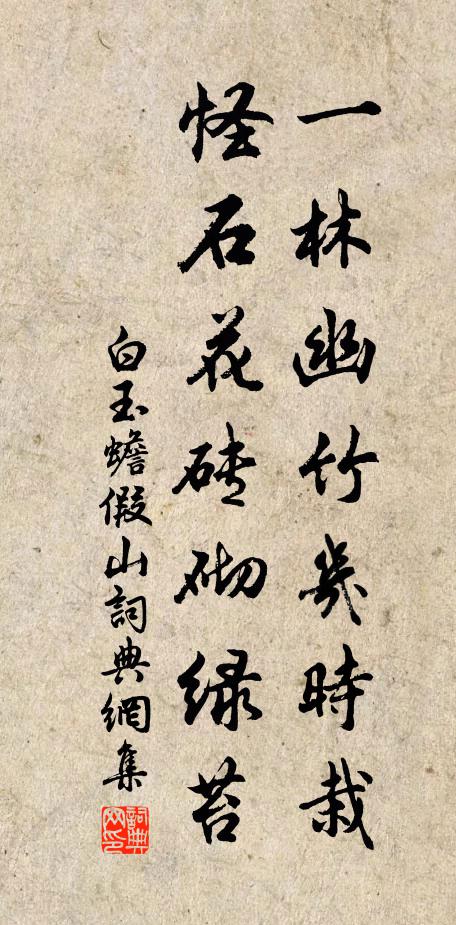 一林幽竹幾時栽
怪石花磚砌緑苔
白玉蟾假山詞典網集
詞典网印